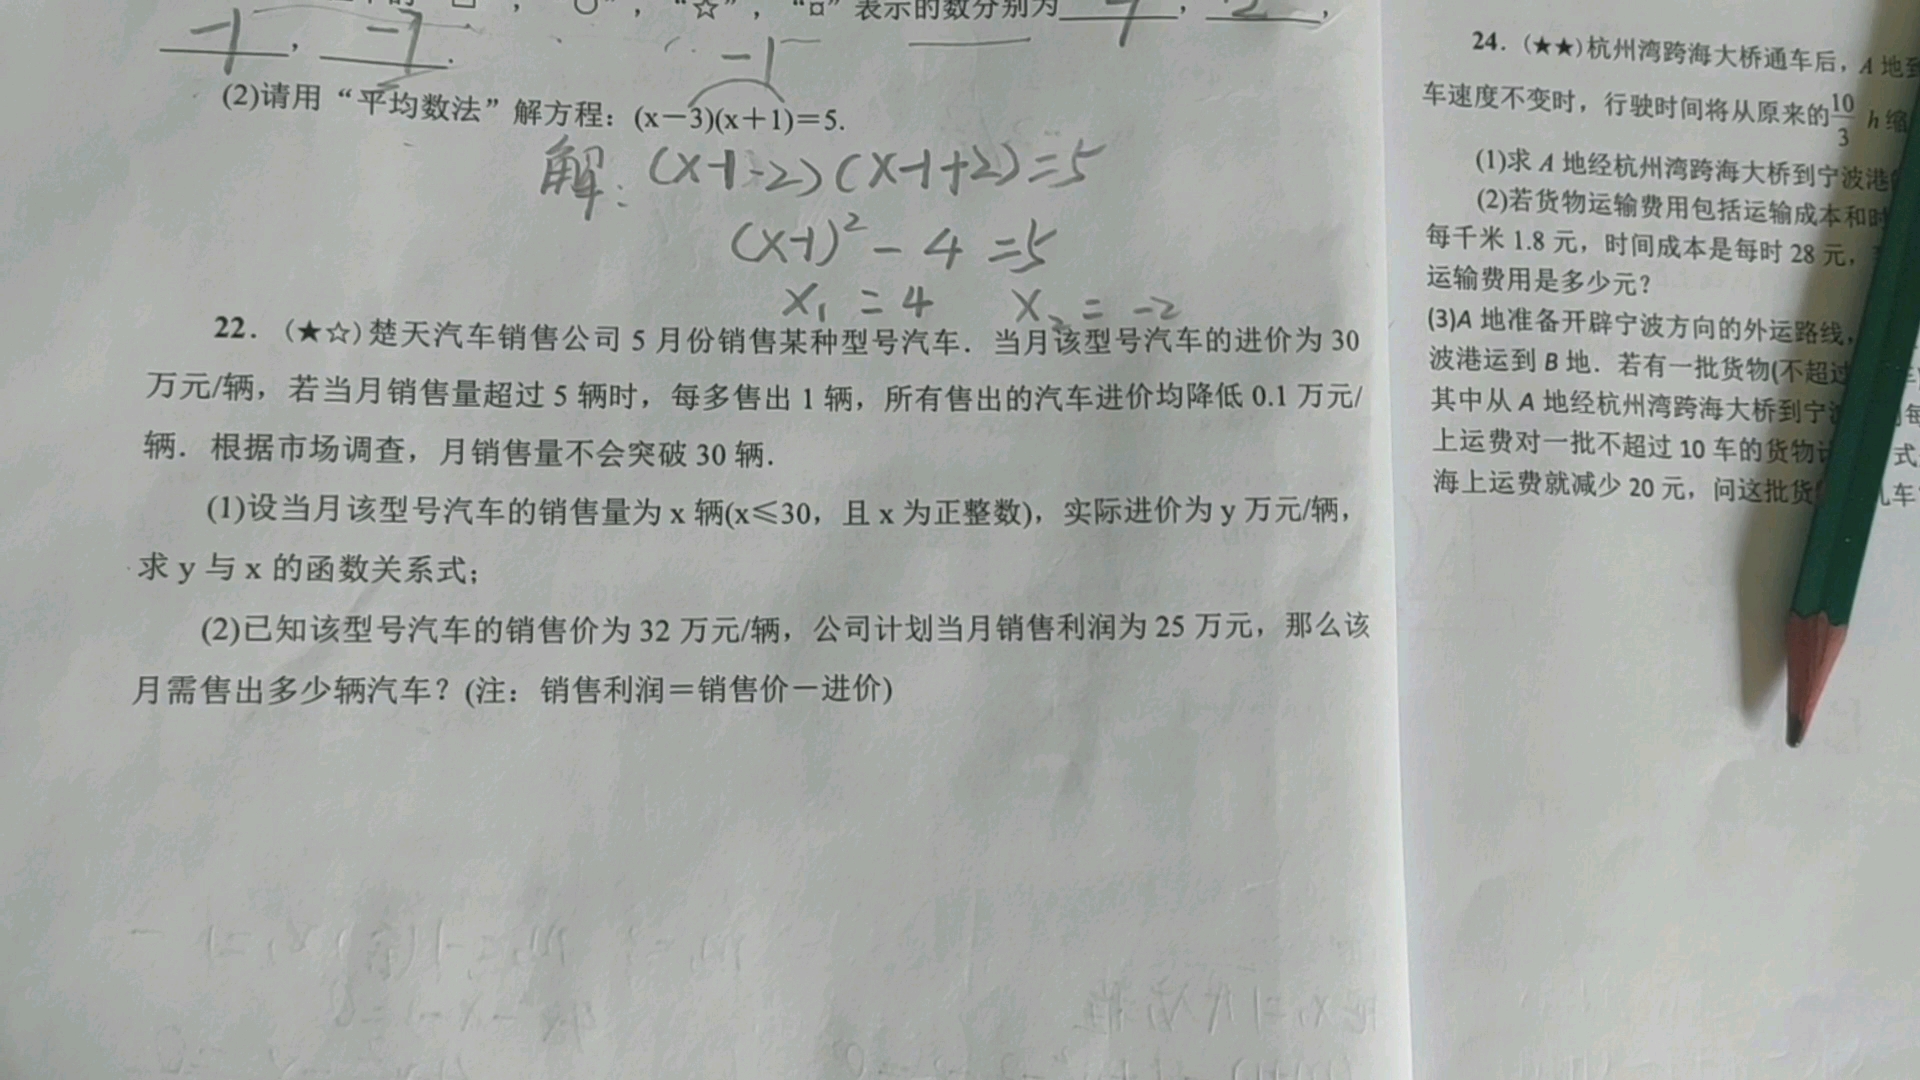 表示的数分别为
-1, -7.
-1
(2)请用“平均数法”解方程：(x－3)(x＋1)＝5.
解: (x-1-2)(x-1+2)=5
(x-1)²-4=5
x₁=4 x₂=-2
22．(★☆)楚天汽车销售公司 5 月份销售某种型号汽车．当月该型号汽车的进价为 30
万元/辆，若当月销售量超过 5 辆时，每多售出 1 辆，所有售出的汽车进价均降低 0.1 万元/
辆．根据市场调查，月销售量不会突破 30 辆．
(1)设当月该型号汽车的销售量为 x 辆(x≤30，且 x 为正整数)，实际进价为 y 万元/辆，
求 y 与 x 的函数关系式；
(2)已知该型号汽车的销售价为 32 万元/辆，公司计划当月销售利润为 25 万元，那么该
月需售出多少辆汽车？(注：销售利润＝销售价－进价)
24．(★★)杭州湾跨海大桥通车后，A 地到
车速度不变时，行驶时间将从原来的10/3 h 缩
(1)求 A 地经杭州湾跨海大桥到宁波港
(2)若货物运输费用包括运输成本和时
每千米 1.8 元，时间成本是每时 28 元，
运输费用是多少元？
(3)A 地准备开辟宁波方向的外运路线，
波港运到 B 地．若有一批货物(不超过
其中从 A 地经杭州湾跨海大桥到宁 每
上运费对一批不超过 10 车的货物 式
海上运费就减少 20 元，问这批货 几车